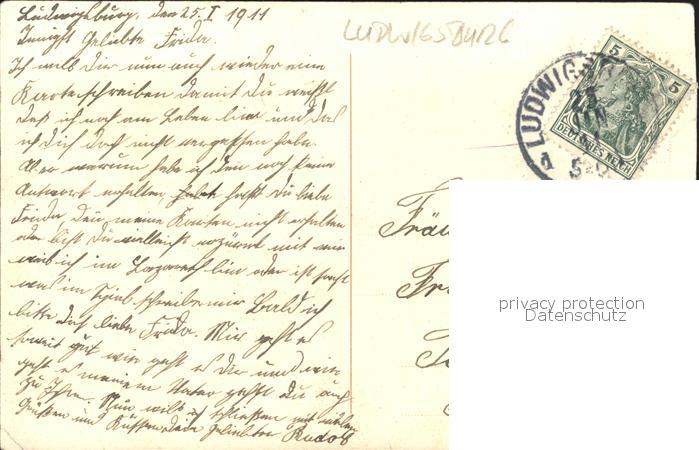 Ludwigsburg, den 25. I 1911
Innigst Geliebte Frida.
Ich will Dir nun auch wieder eine
Karte schreiben damit Du weißt
daß ich noch am Leben bin und das
ich Dich doch nicht vergessen habe.
Aber warum habe ich den noch keine
Antwort erhalten, hast Du liebe
Frida, den meine Karten nicht erhalten
oder bist Du vielleicht erzürnt mit mir
weil ich im Lazareth bin oder ist sonst
was im Spiel schreibe mir Bald ich
bitte Dich liebe Frida. Mir geht es
soweit gut wie geht es Dir und wie
geht es meinem Vater gehst Du auch
zu Ihm. Nun will ich schließen mit vielen
Grüßen und Küssen Dein Geliebter Rudolf
LUDWIGSBURG
LUDWIGSB
25
5
5
DEUTSCHES REICH
Fräu
Fr
privacy protection
Datenschutz